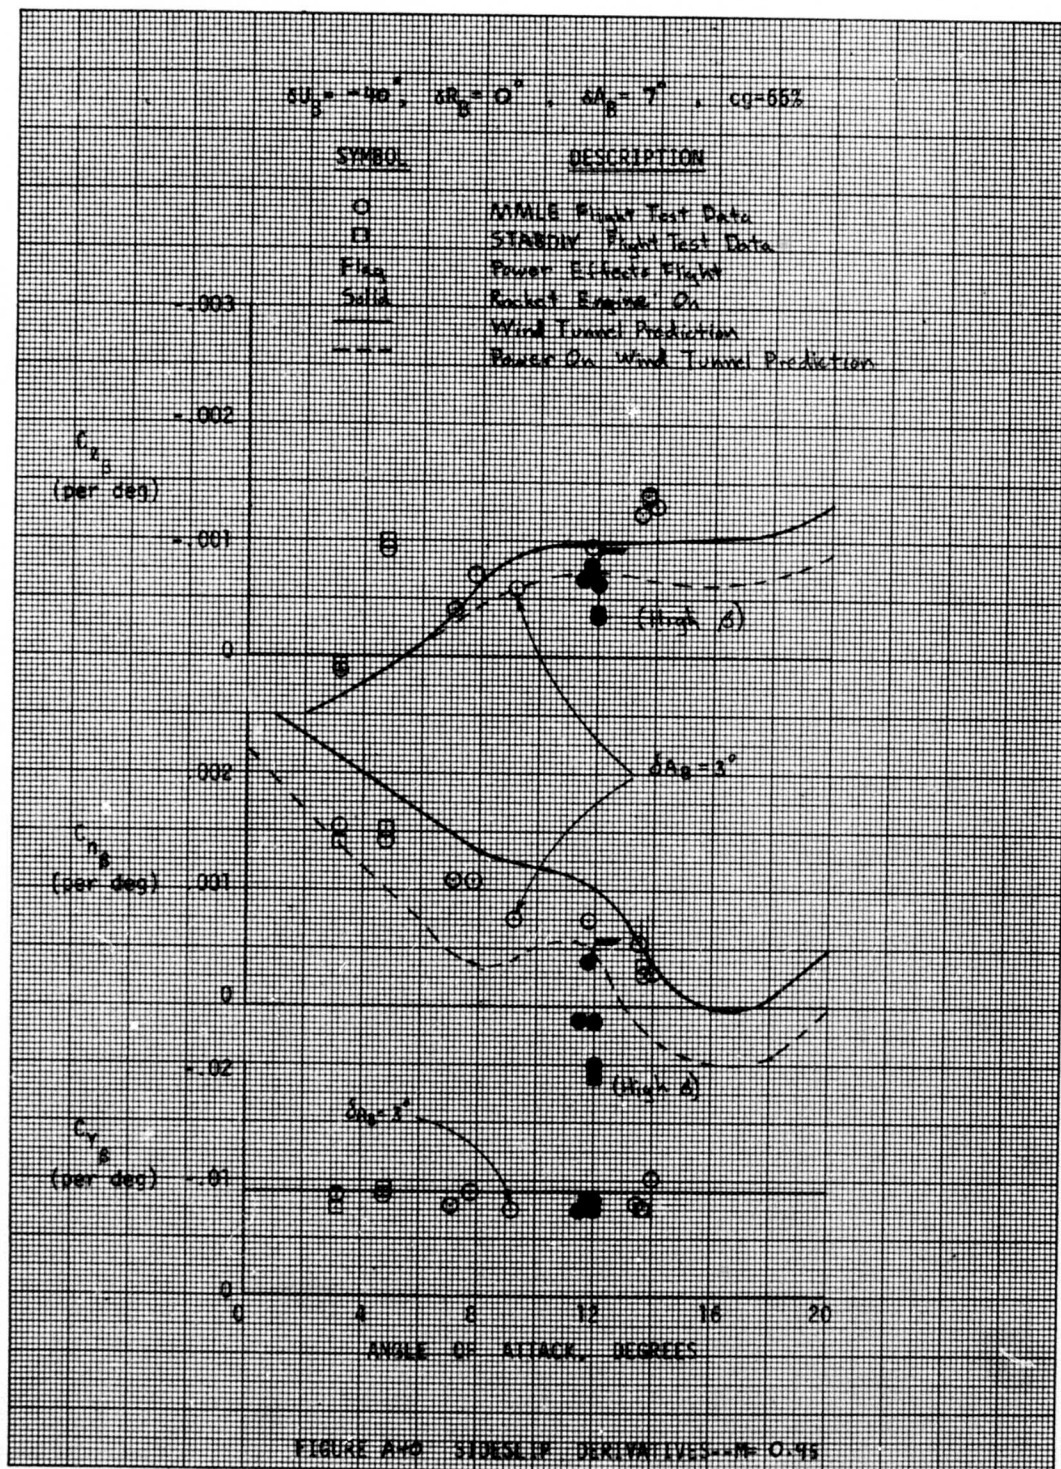 δU_B = -40°, δR_B = 0°, δA_B = 7°, cg=55%
SYMBOL DESCRIPTION
○ MMLE Flight Test Data
□ STABDIV Flight Test Data
Flag Power Effects Flight
Solid Rocket Engine On
Wind Tunnel Prediction
Power On Wind Tunnel Prediction
-.003
-.002
C_ℓ_β
(per deg)
-.001
(High β)
0
δA_B = 3°
.002
C_n_β
(per deg)
.001
0
-.02
(High β)
δA_B = 3°
C_Y_β
(per deg)
-.01
0
0 4 8 12 16 20
ANGLE OF ATTACK, DEGREES
FIGURE SIDESLIP DERIVATIVES--M= 0.95